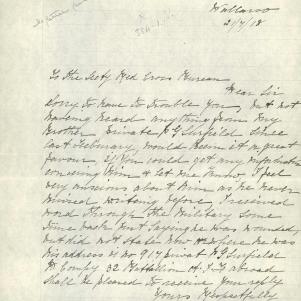 Wallaroo
21/7/18
To the Secty Red Cross Bureau
Dear Sir
Sorry to have to trouble you, but not
having heard anything from my
Brother Private P G Sirfield since
last February, would deem it a great
favour, if you could get any information
concerning him & let me know, I feel
very anxious about him as he never
missed writing before I received
word through the Military some
time back just saying he was wounded
but did not state how or where he was
his address is No 917 Privat P G Sirfield
Compy 32 Battallion A.I.F. abroad
Shall be pleased to receive your reply
Yours Respectfully